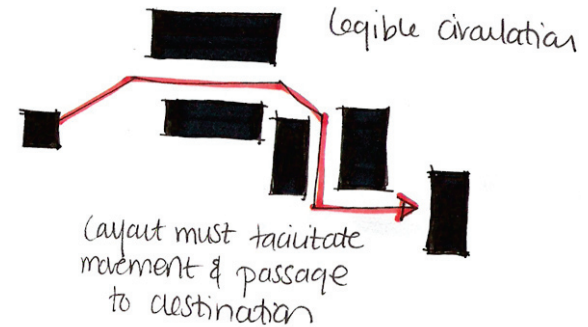 Legible circulation
Layout must facilitate
movement & passage
to destination